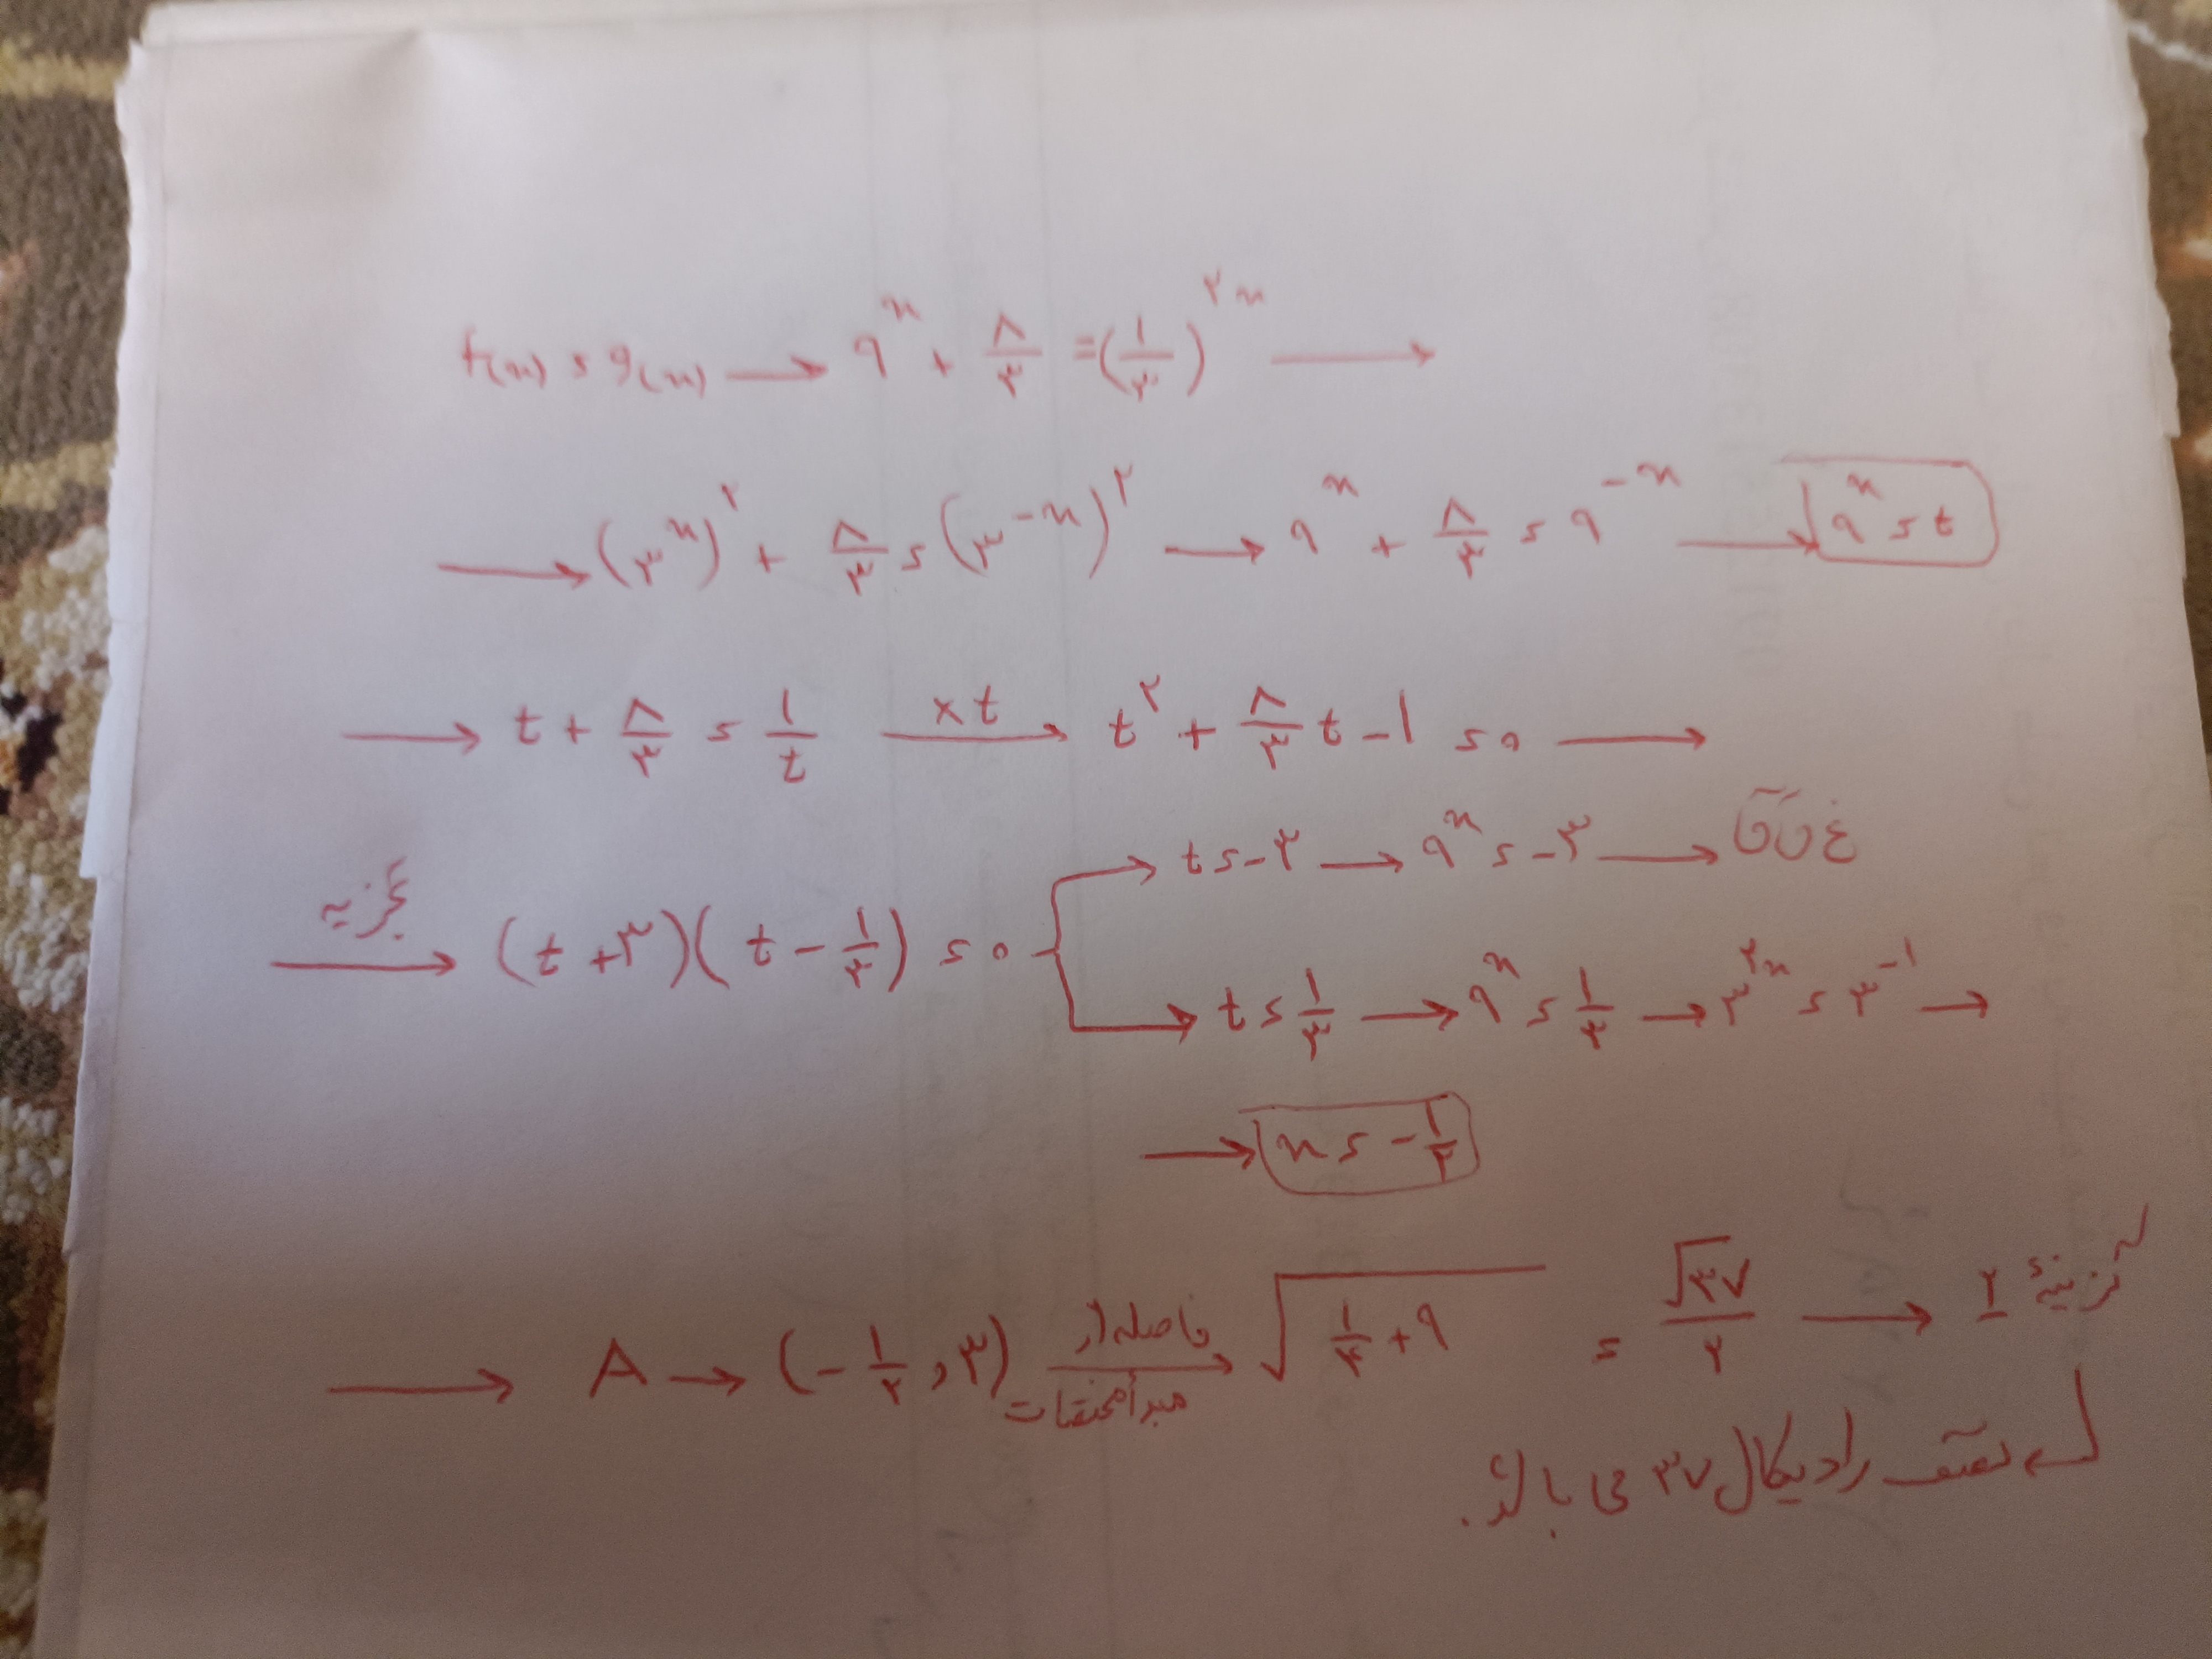 f(x) = g(x) → ۹^x + ۸/۳ = (۱/۳)^۲x →
→ (۳^x)^۲ + ۸/۳ = (۳^-x)^۲ → ۹^x + ۸/۳ = ۹^-x → ۹^x = t
→ t + ۸/۳ = ۱/t ×t → t^۲ + ۸/۳ t - ۱ = ۰ →
تجزیه → (t + ۳)(t - ۱/۳) = ۰
→ t = -۳ → ۹^x = -۳ → غ ق ق
→ t = ۱/۳ → ۹^x = ۱/۳ → ۳^۲x = ۳^-۱ →
→ x = -۱/۲
→ A → (-۱/۲, ۳) فاصله از مبدأ مختصات → √(۱/۴ + ۹) = √۳۷/۲ → گزینهٔ ۲
نصف رادیکال ۳۷ می باشد.